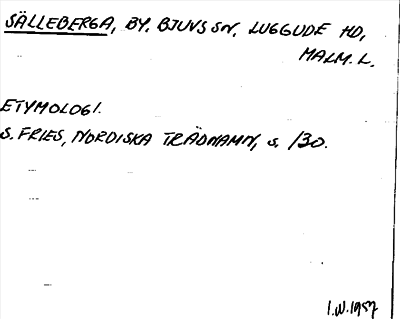 SÄLLEBERGA, BY. BJUVS SN, LUGGUDE HD,
MALM. L.
ETYMOLOGI.
S. FRIES, NORDISKA TRÄDNAMN, s. 130.
I.W. 1957